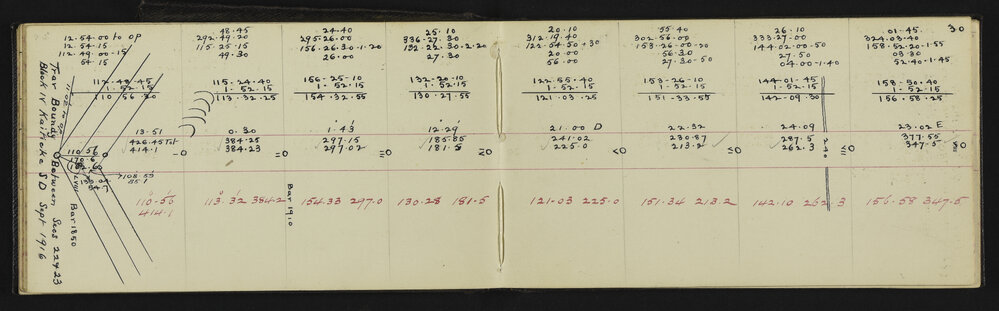 30
12.54.00 to op
12.54.15
112.49.00.15
54.15
112.48.45
1.52.15
110.56.30
13.51
426.45
414.1
110.56
414.1
48.45
292.49.20
115.25.15
49.30
115.24.40
1.52.15
113.32.25
0.30
384.25
384.23
113.32 384.2
24.40
295.26.00
156.26.30-1.20
26.00
156.25.10
1.52.15
154.32.55
1.43
297.15
297.02
154.33 297.0
Bar 1910
25.10
336.27.30
132.22.30-2.20
27.30
132.20.10
1.52.15
130.27.55
12.29
185.85
181.5
130.28 181.5
20.10
312.19.40
122.54.50+30
20.00
56.00
122.55.40
1.52.15
121.03.25
21.00 D
241.02
225.0
121.03 225.0
55.40
302.56.00
153.26.00-20
56.30
27.30-50
153.26.10
1.52.15
151.33.55
22.32
230.87
213.2
151.34 213.2
26.10
333.27.00
144.02.00-50
27.50
04.00-1.40
144.01.45
1.52.15
142.09.30
24.09
287.5
262.3
142.10 262.3
01.45
324.03.40
158.52.20-1.55
03.30
52.40-1.45
158.50.40
1.52.15
156.58.25
23.02 E
377.55
347.5
156.58 347.5
Trav Boundy Between Secs 22 & 23
Block IV Kaitoke SD Sept 1916
Bar 1850